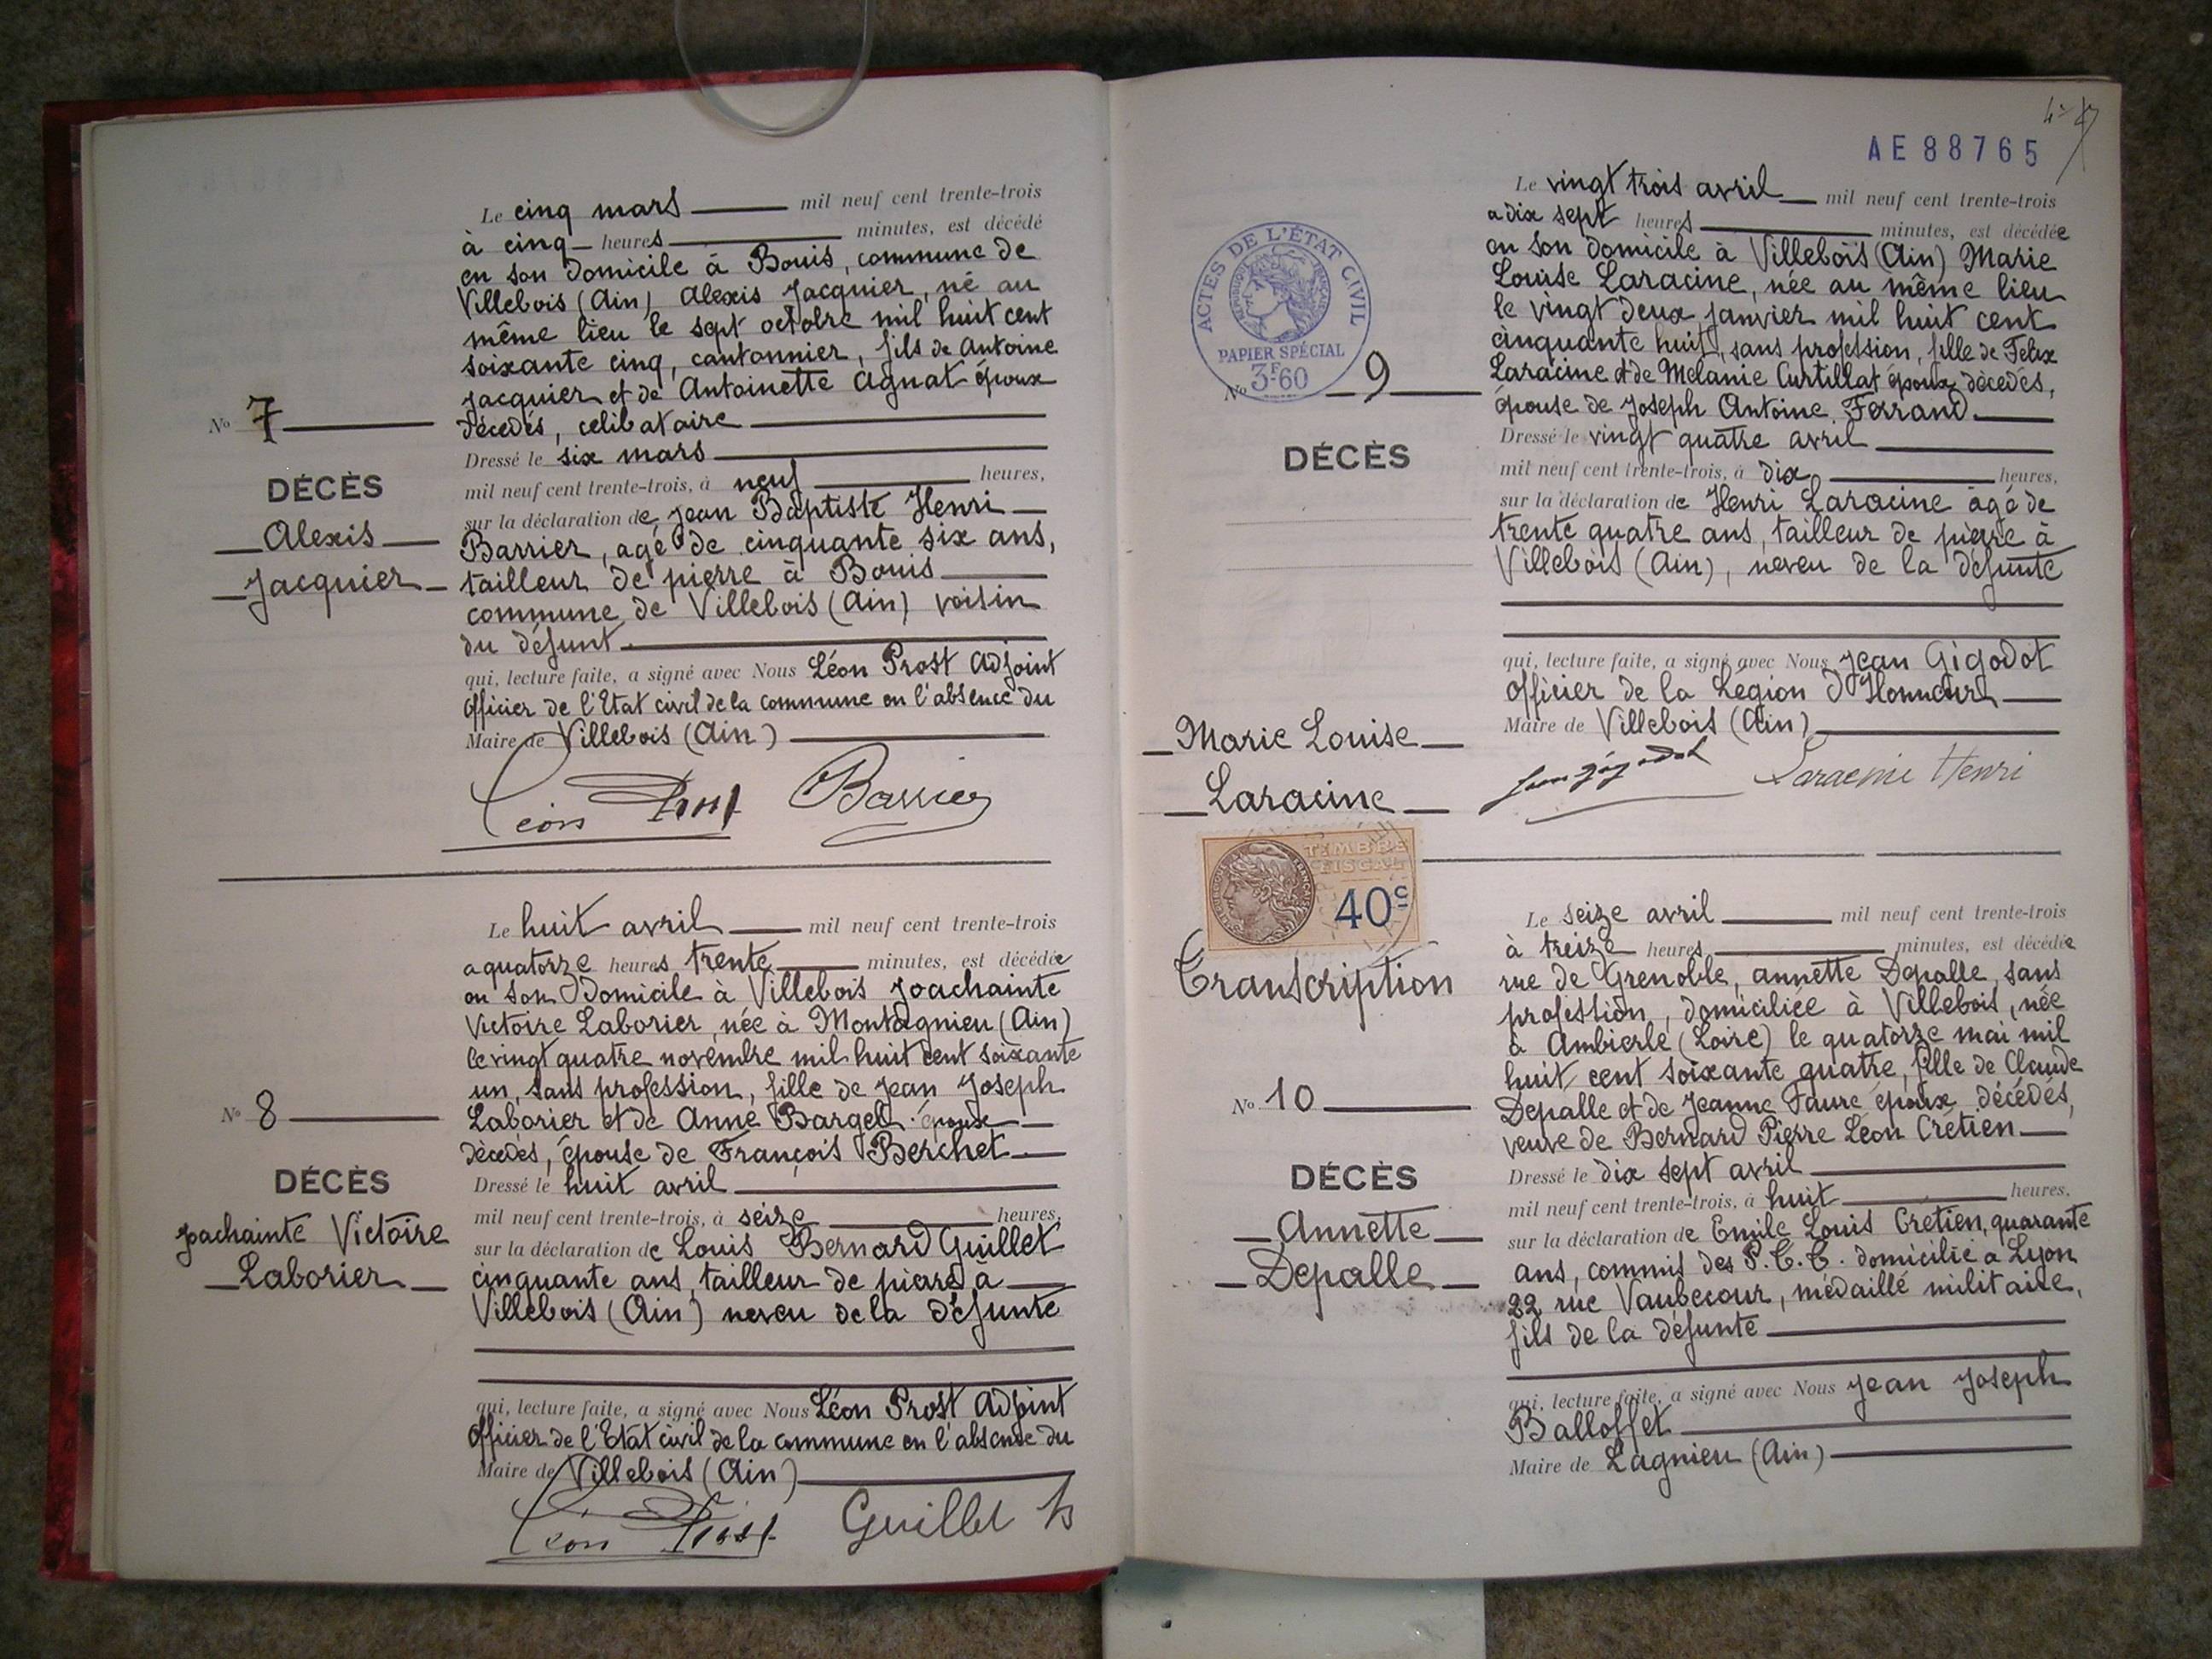 Le cinq mars mil neuf cent trente-trois
à cinq heures minutes, est décédé
en son domicile à Bouis, commune de
Villebois (Ain) Alexis Jacquier, né au
même lieu le sept octobre mil huit cent
soixante cinq, cantonnier, fils de Antoine
Jacquier et de Antoinette Agnat époux
décedés, celibataire
Nº 7
DÉCÈS
Alexis
Jacquier
Dressé le six mars
mil neuf cent trente-trois, à neuf heures,
sur la déclaration de Jean Baptiste Henri
Barrier, agé de cinquante six ans,
tailleur de pierre à Bouis
commune de Villebois (Ain) voisin
du défunt
qui, lecture faite, a signé avec Nous Léon Prost Adjoint
Officier de l'Etat civil de la commune en l'absence du
Maire de Villebois (Ain)
Léon Prost Barrier
Le huit avril mil neuf cent trente-trois
a quatorze heures trente minutes, est décédée
en son Domicile à Villebois Joachainte
Victoire Laborier, née à Montagnieu (Ain)
le vingt quatre novembre mil huit cent soixante
un, sans profession, fille de Jean Joseph
Laborier et de Anne Barget époux
décedés, épouse de François Berchet
Nº 8
DÉCÈS
Joachainte Victoire
Laborier
Dressé le huit avril
mil neuf cent trente-trois, à seize heures,
sur la déclaration de Louis Bernard Guillet
cinquante ans, tailleur de pierre à
Villebois (Ain) neveu de la défunte
qui, lecture faite, a signé avec Nous Léon Prost Adjoint
Officier de l'Etat civil de la commune en l'absence du
Maire de Villebois (Ain)
Léon Prost Guillet
AE 88765
Le vingt trois avril mil neuf cent trente-trois
a dix sept heures minutes, est décédée
en son domicile à Villebois (Ain) Marie
Louise Laracine, née au même lieu
le vingt deux janvier mil huit cent
cinquante huit, sans profession, fille de Felix
Laracine et de Melanie Curtillat époux décedés,
épouse de Joseph Antoine Ferrand
ACTES DE L'ÉTAT CIVIL
RÉPUBLIQUE FRANÇAISE
PAPIER SPÉCIAL
3F.60
Nº 9
DÉCÈS
Marie Louise
Laracine
Dressé le vingt quatre avril
mil neuf cent trente-trois, à dix heures,
sur la déclaration de Henri Laracine âgé de
trente quatre ans, tailleur de pierre à
Villebois (Ain), neveu de la défunte
qui, lecture faite, a signé avec Nous Jean Gigodot
Officier de la Légion d'Honneur
Maire de Villebois (Ain)
Jean Gigodot Laracine Henri
TIMBRE
FISCAL
40c
Transcription
Le seize avril mil neuf cent trente-trois
à treize heures minutes, est décédée
rue de Grenoble, annette Depalle, sans
profession, domiciliée à Villebois, née
à Ambierle (Loire) le quatorze mai mil
huit cent soixante quatre, fille de Claude
Depalle et de Jeanne Faure époux décédés,
veuve de Bernard Pierre Léon Crétien
Nº 10
DÉCÈS
Annette
Depalle
Dressé le dix sept avril
mil neuf cent trente-trois, à huit heures,
sur la déclaration de Emile Louis Crétien, quarante
ans, commis des P.T.T. domicilié a Lyon
22 rue Vaubecour, médaillé militaire,
fils de la défunte
qui, lecture faite, a signé avec Nous Jean Joseph
Balloffet
Maire de Lagnieu (Ain)